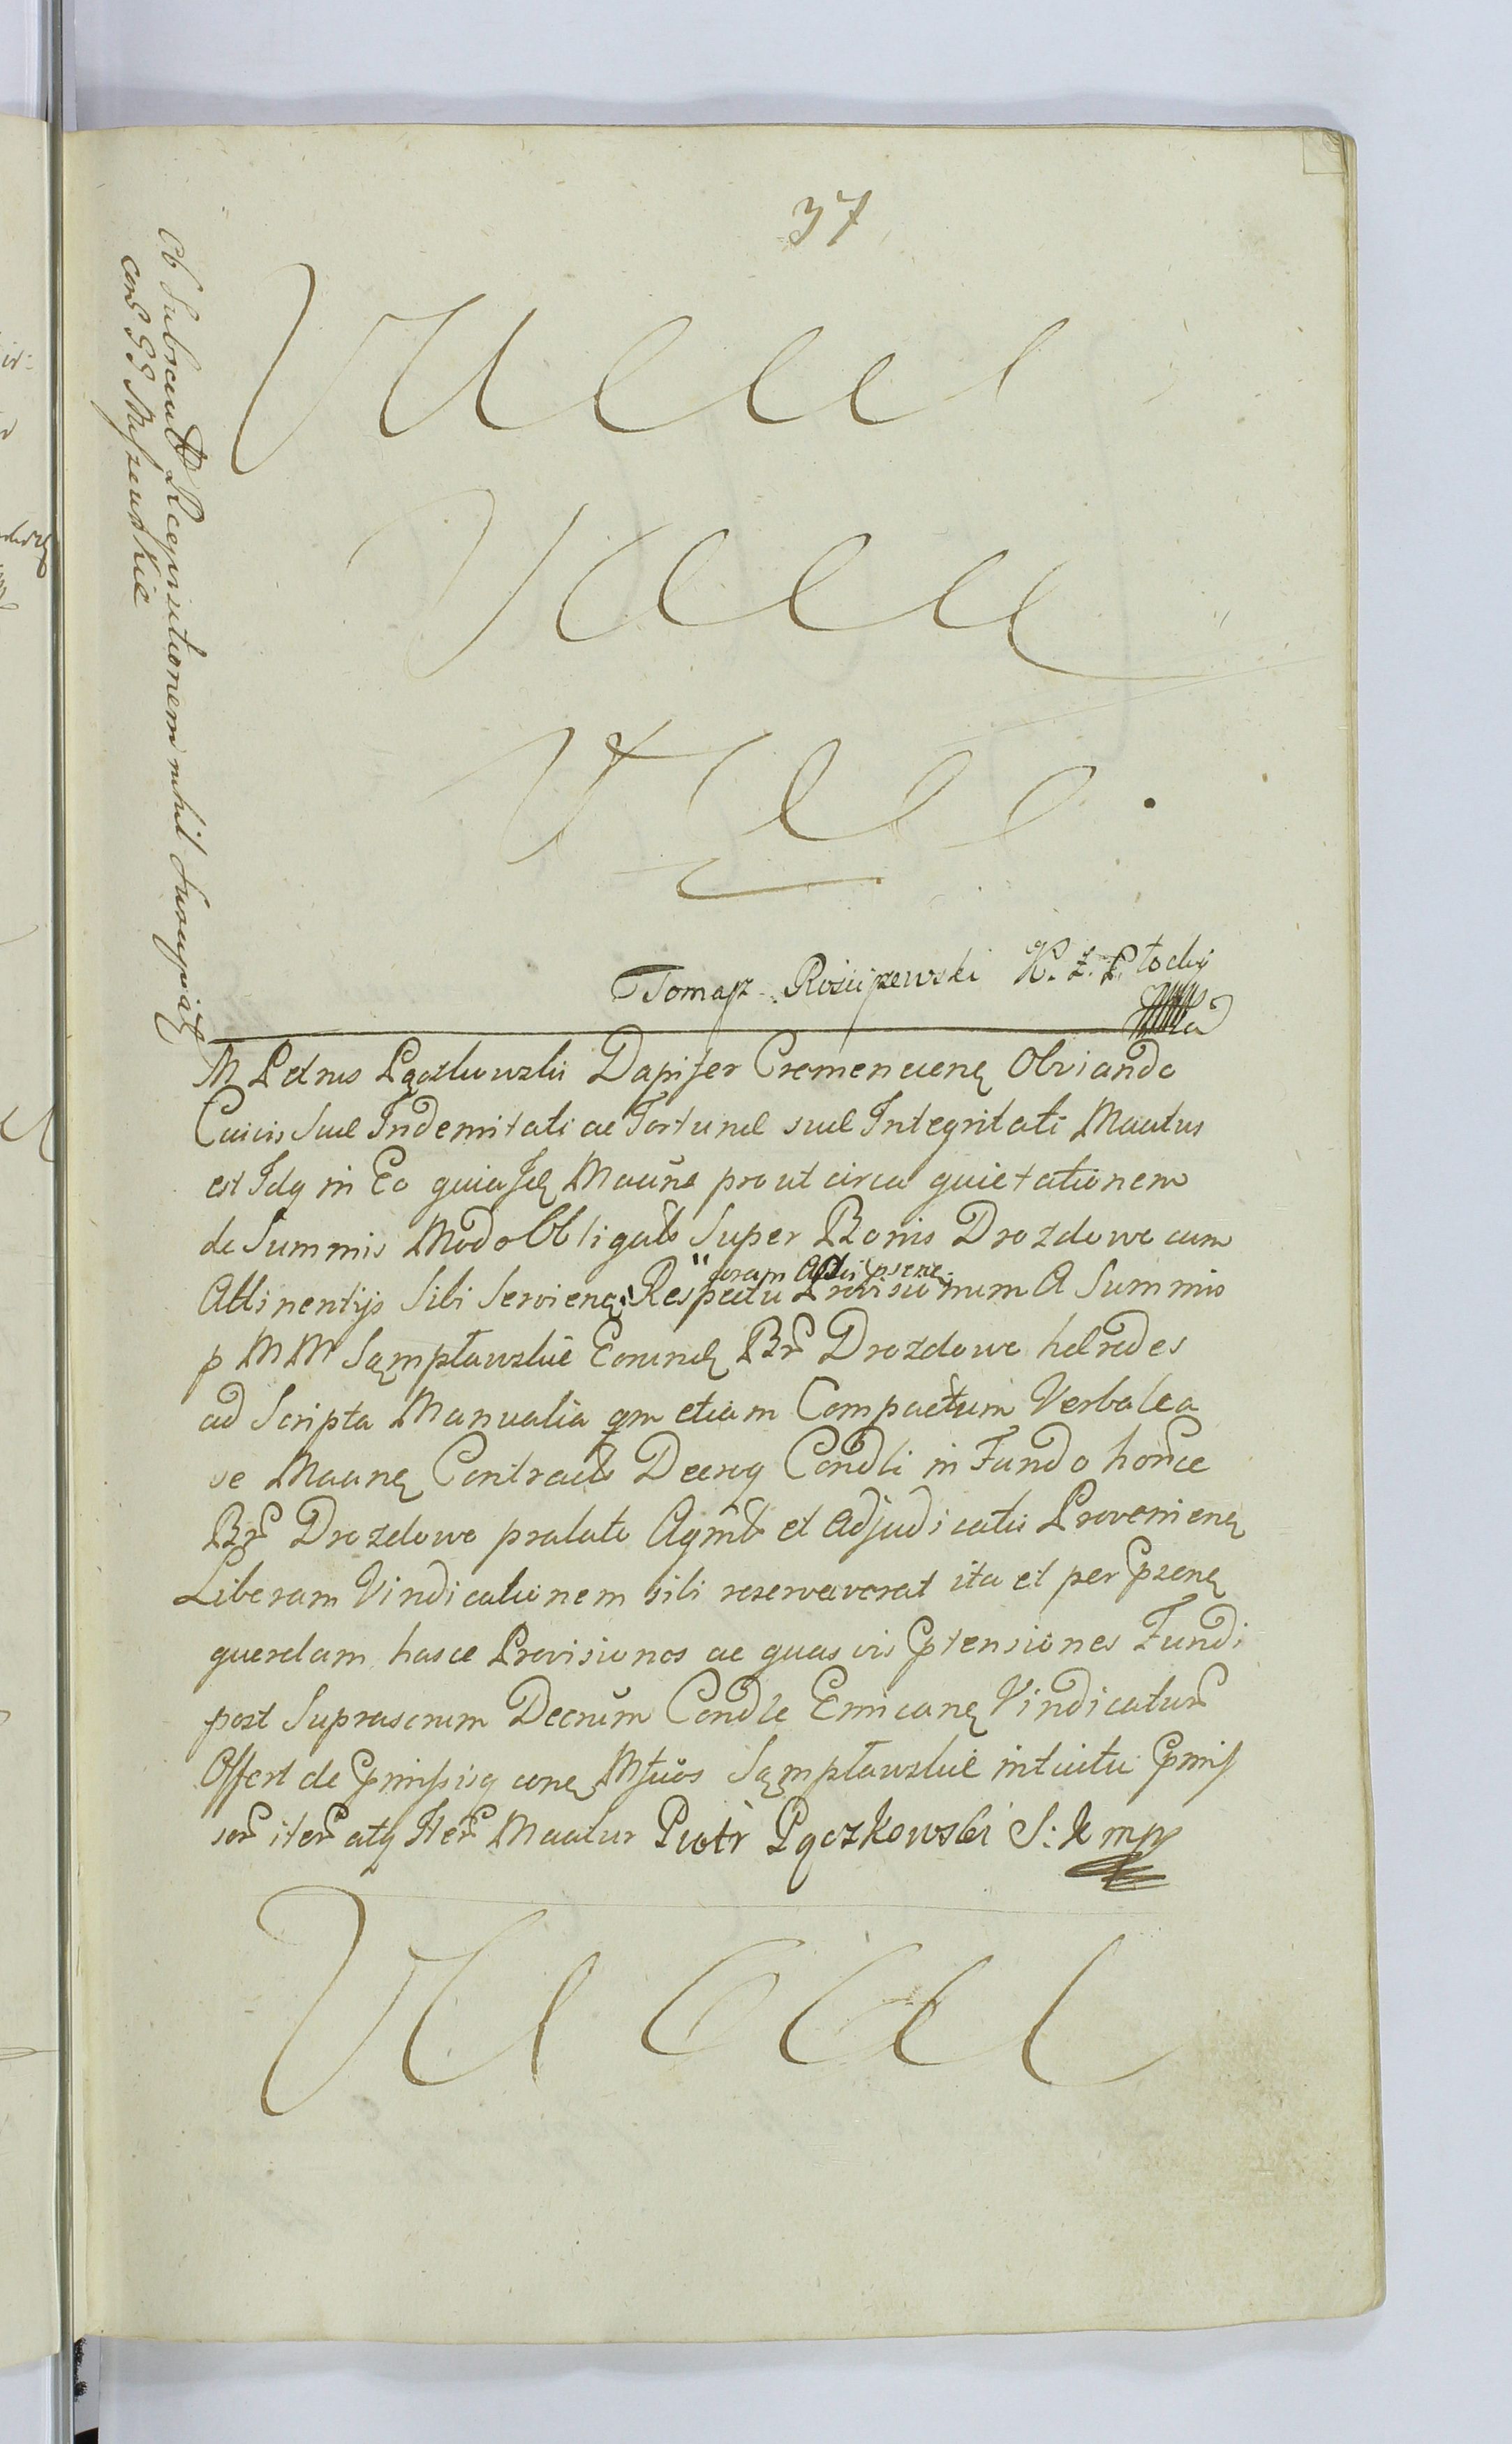 37
Ob Subscrib Reqvisitionem nihil Suscepit
cons G G Maszewskie
Tomasz Rościszewski K. Z. P. tocky
M Petrus Pączkowski Dapifer Cremenecens Obviando
Cuivis Suae Indemnitati ac Fortunae suae Integritati Mantus
est Idq in Eo quia Id Maans prout circa quietationem
de Summis Modo Obligats Super Bonis Drozdowo cum
Attinentijs Sibi Serviens Respectu Provisionum A Summis
coram Actis psens
p MM Sąmpławskie Eorund Br Drozdowo haeredes
ad Scripta Manualia qm etiam Compactum Verbale a
se Maans Contracts Decroq Condli in Fundo horce
Br Drozdowo pralato Agmts et Adjudicatis Proveniens
Liberam Vindicationem sibi reservaverat ita et per Epsens
querelam hasce Provisiones ac quas vis Eptensiones Fundi
post Suprascrum Decrum Condle Emicans Vindicatur
Offert de Epmissisq cons Mfuos Sąmpławskie intuitu Epmiss
ser iter atq Iter Maatur Piotr Pączkowski S: K mp